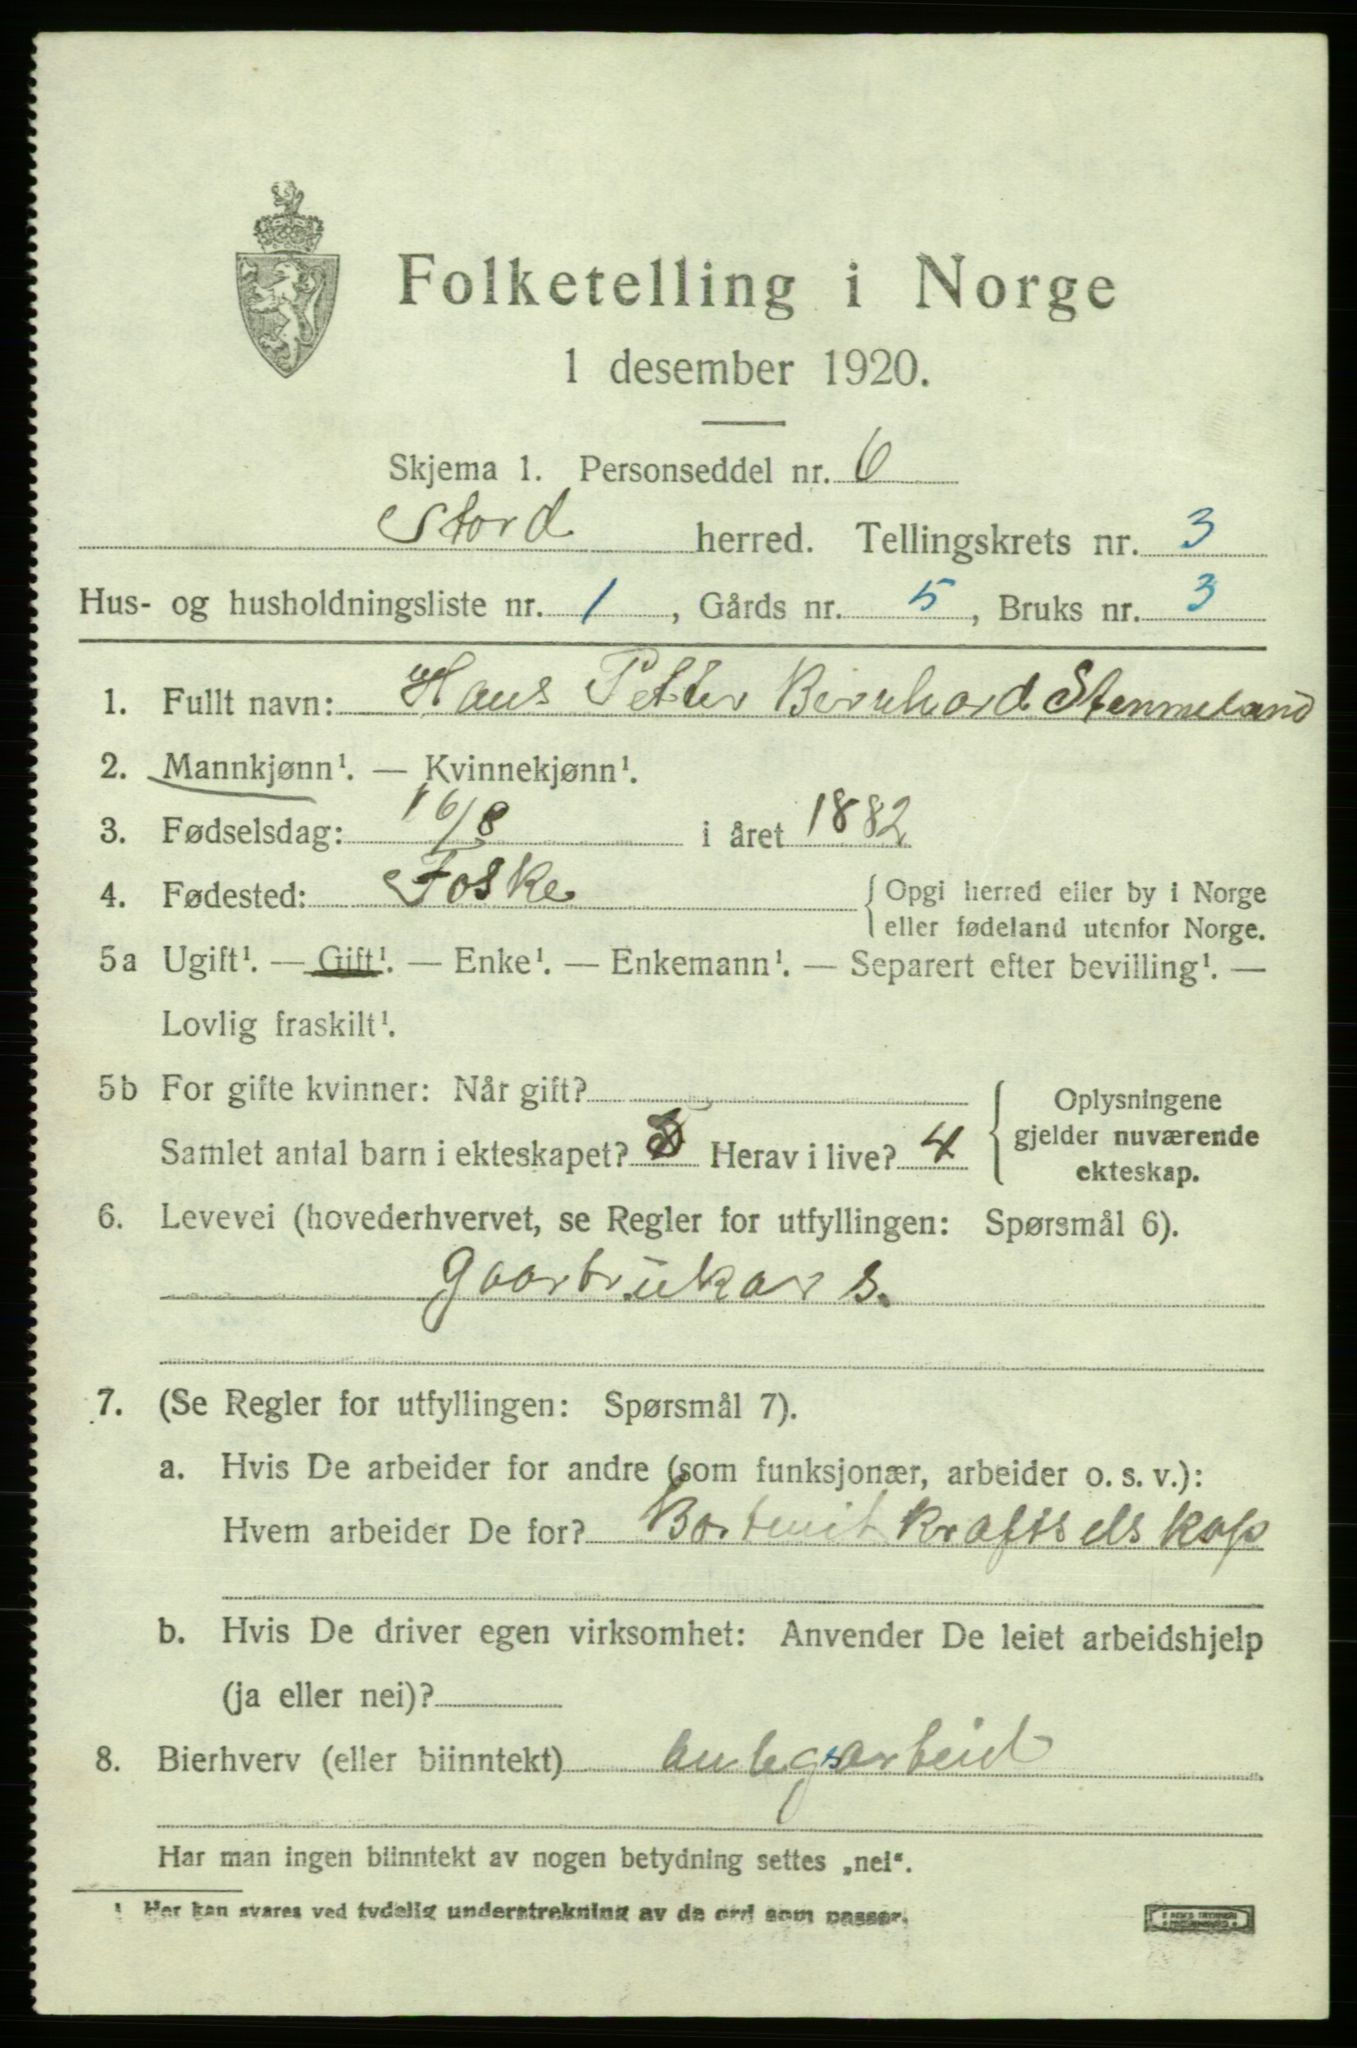 Folketelling i Norge
1 desember 1920.
Skjema 1. Personseddel nr. 6
Stord herred. Tellingskrets nr. 3
Hus- og husholdningsliste nr. 1, Gårds nr. 5, Bruks nr. 3
1. Fullt navn: Hans Petter Bernhard Stenmeland
2. Mannkjønn¹. — Kvinnekjønn¹.
3. Fødselsdag: 16/8 i året 1882
4. Fødested: Foske { Opgi herred eller by i Norge
eller fødeland utenfor Norge.
5a Ugift¹. — Gift¹. — Enke¹. — Enkemann¹. — Separert efter bevilling¹. —
Lovlig fraskilt¹.
5b For gifte kvinner: Når gift?
Samlet antal barn i ekteskapet? Herav i live? 4
{ Oplysningene
gjelder nuværende
ekteskap.
6. Levevei (hovederhvervet, se Regler for utfyllingen: Spørsmål 6).
Goorbrukar s.
7. (Se Regler for utfyllingen: Spørsmål 7).
a. Hvis De arbeider for andre (som funksjonær, arbeider o. s. v.):
Hvem arbeider De for? kraftselskap
b. Hvis De driver egen virksomhet: Anvender De leiet arbeidshjelp
(ja eller nei)?
8. Bierhverv (eller biinntekt) anlegsarbeid
Har man ingen biinntekt av nogen betydning settes „nei“.
¹ Her kan svares ved tydelig understrekning av de ord som passer.